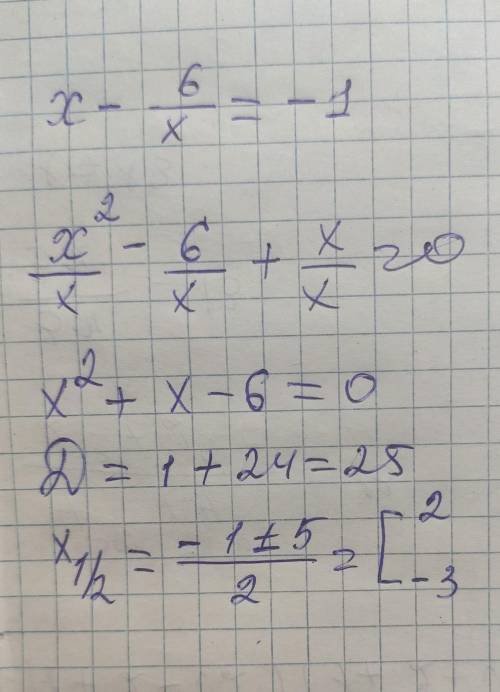 x - 6/x = -1
x²/x - 6/x + x/x = 0
x² + x - 6 = 0
Д = 1 + 24 = 25
x1/2 = (-1 ± 5)/2 = [ 2 -3